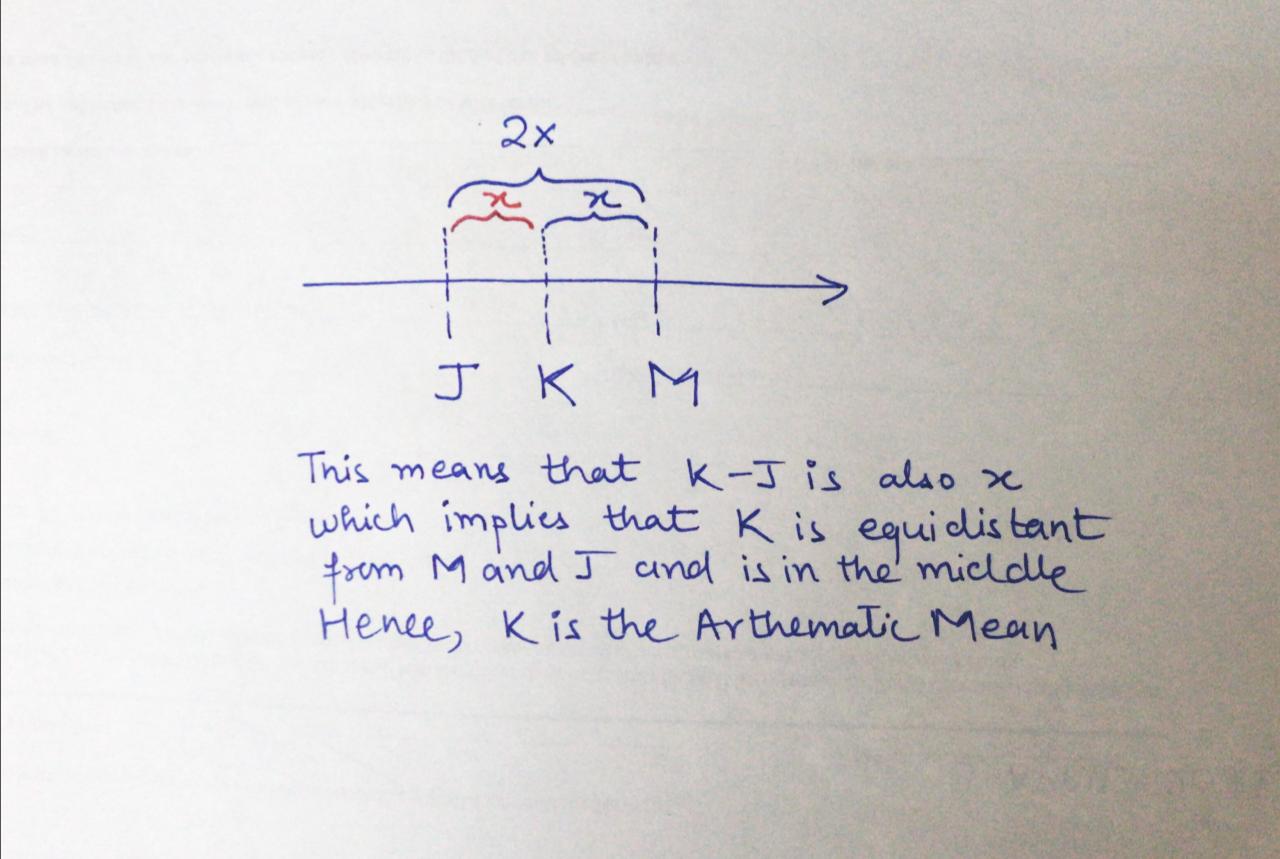 2x
x x
J K M
This means that K-J is also x
which implies that K is equidistant
from M and J and is in the middle
Hence, K is the Arthematic Mean